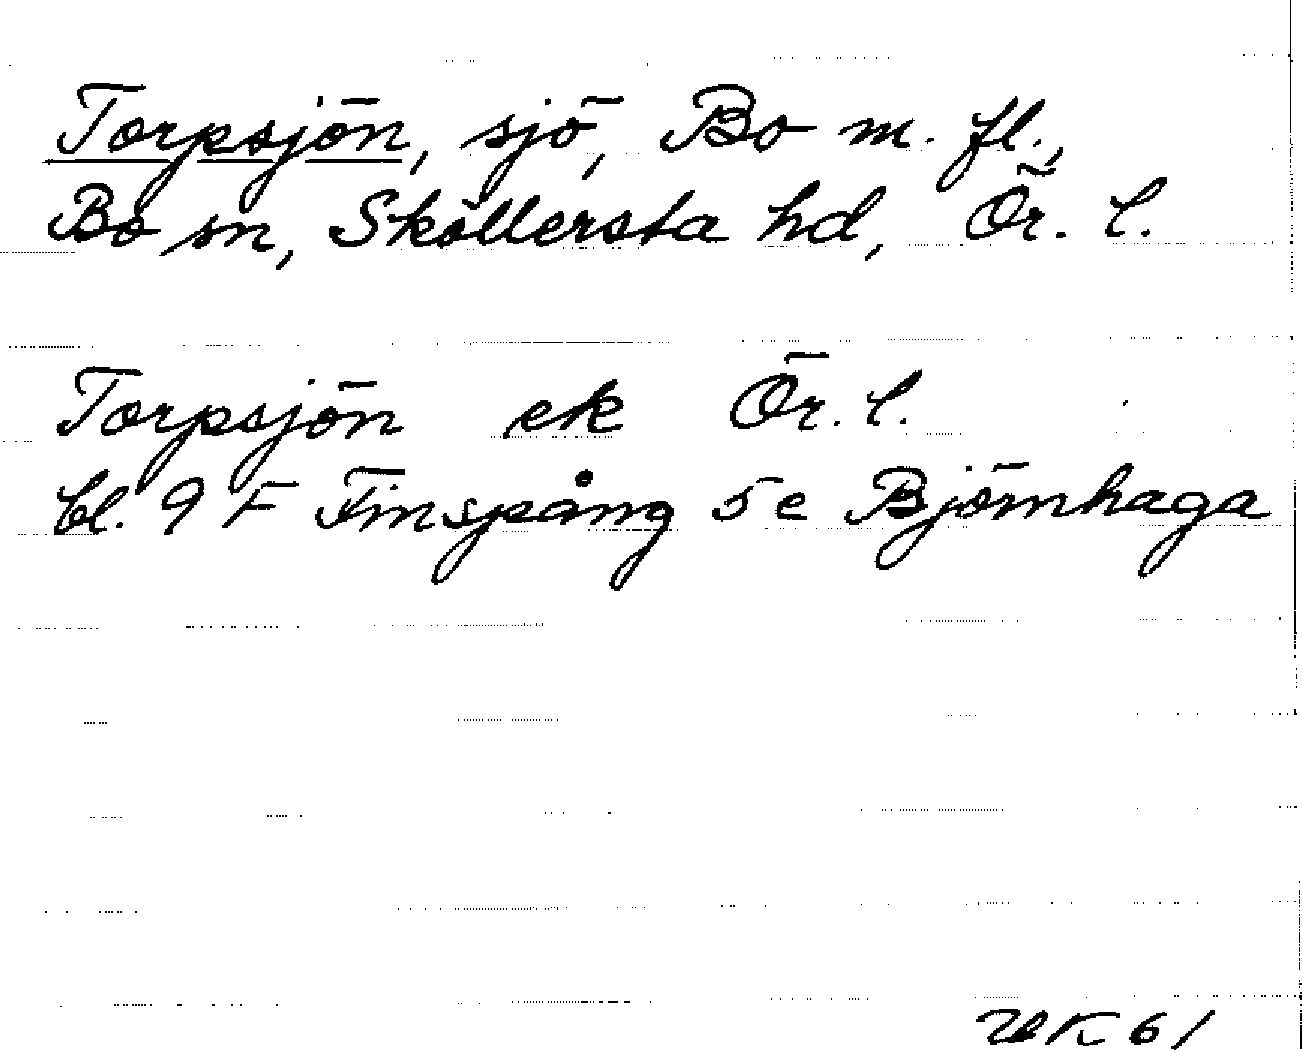 Torpsjön, sjö, Bo m. fl.,
Bo sn, Sköllersta hd, Ör. l.
Torpsjön ek Ör. l.
bl. 9 F Finspång 5 e Björnhaga
61